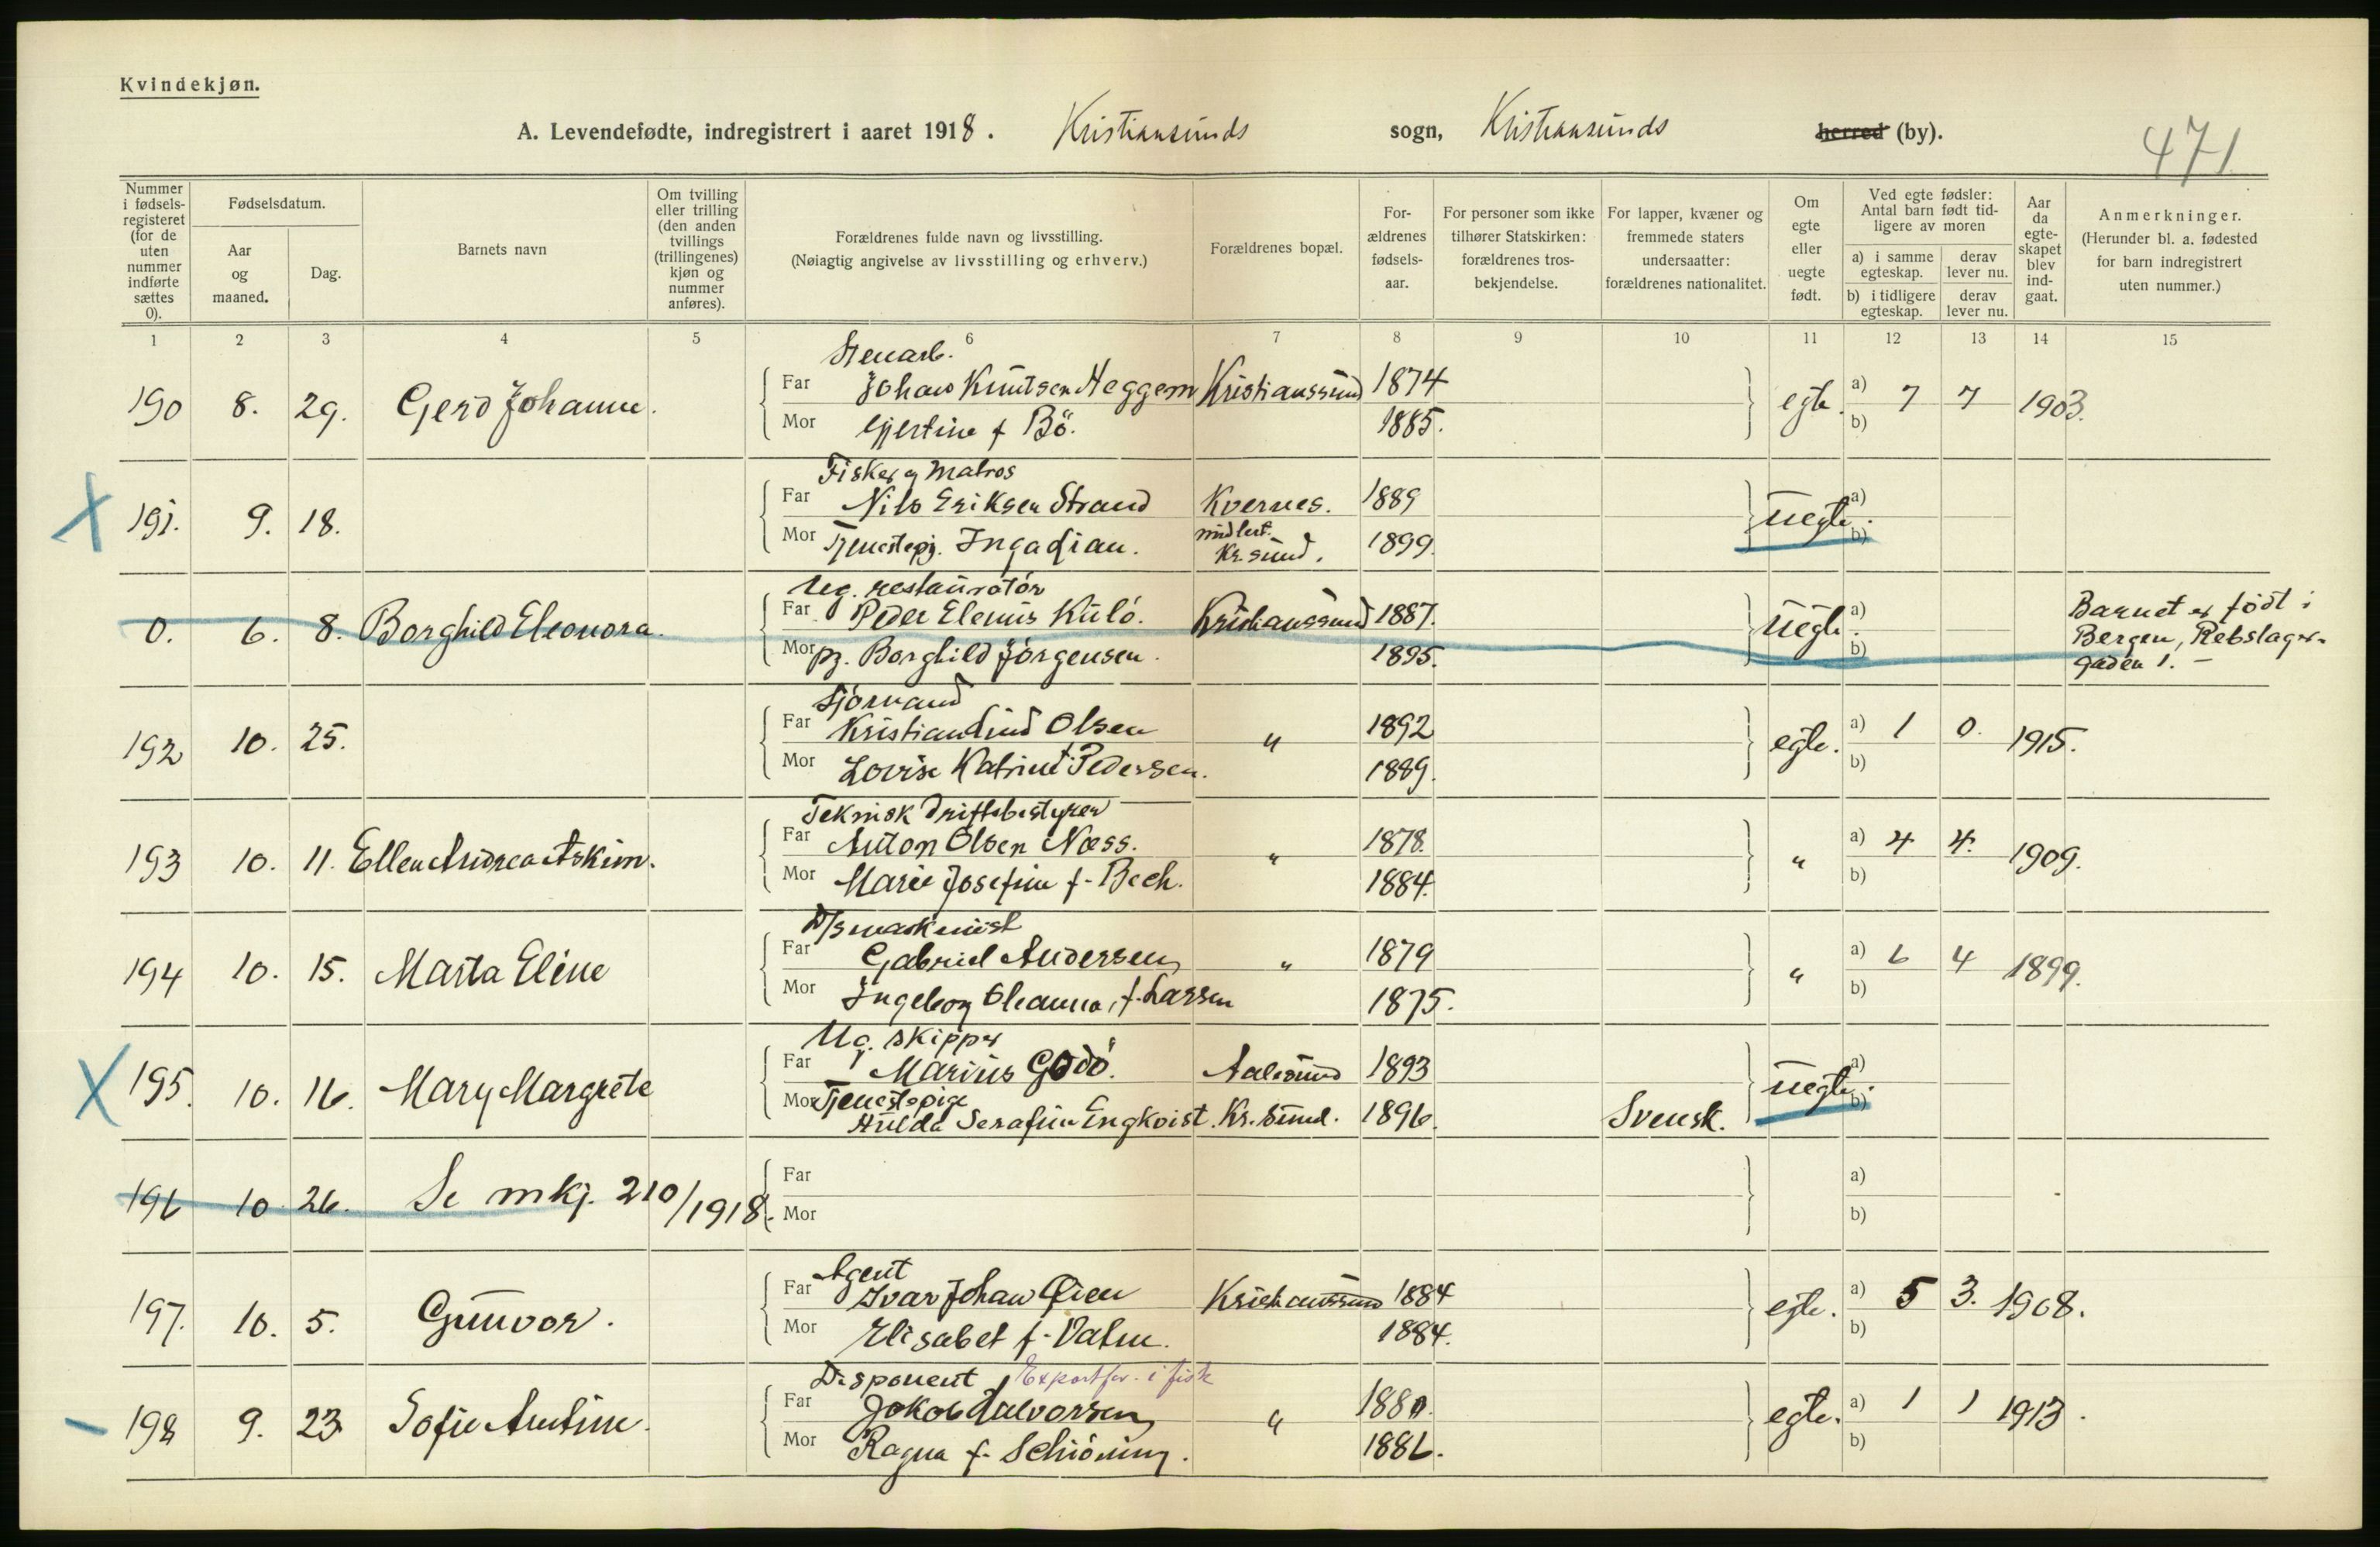 Kvindekjøn.
A. Levendefødte, indregistrert i aaret 1918. Kristiansunds sogn, Kristiansunds herred (by).
471
Nummer i fødsels-registeret (for de uten nummer indførte sættes 0).
Fødselsdatum.
Aar og maaned.
Dag.
Barnets navn
Om tvilling eller trilling (den anden tvillings (trillingenes) kjøn og nummer anføres).
Forældrenes fulde navn og livsstilling.
(Nøiagtig angivelse av livsstilling og erhverv.)
Forældrenes bopæl.
For-ældrenes fødsels-aar.
For personer som ikke tilhører Statskirken: forældrenes tros-bekjendelse.
For lapper, kvæner og fremmede staters undersaatter: forældrenes nationalitet.
Om egte eller uegte født.
Ved egte fødsler: Antal barn født tid-ligere av moren
a) i samme egteskap.
derav lever nu.
b) i tidligere egteskap.
derav lever nu.
Aar da egte-skapet blev ind-gaat.
Anmerkninger.
(Herunder bl. a. fødested for barn indregistrert uten nummer.)
1 2 3 4 5 6 7 8 9 10 11 12 13 14 15
Stenarb.
190 8. 29. Gerd Johanne. Far Johan Knutsen Heggem Kristianssund 1874 egte. a) 7 7 1903.
Mor Gjertine f Bö. 1885. b)
Fisker og Matros
191. 9. 18. Far Nils Eriksen Strand Kvernes. 1889 uegte. a)
Mor Tjenestepg. Inga midlert. Kr.sund. 1899. b)
Ug. restauratör
0. 6. 8. Borghild Eleonora. Far Peder Elenus Kulö. Kristianssund 1887. uegte. a) Barnet er födt i
Mor pg. Borghild Jörgensen. 1895. b) Bergen, Rebslager-
gaden 1. —
Sjömand
192 10. 25. Far Kristian Lind Olsen " 1892 egte. a) 1 0. 1915.
Mor Lovise Katrine f. Pedersen. 1889. b)
Teknisk driftsbestyrer
193 10. 11. Ellen Andrea Askim. Far Anton Olsen Næss. " 1878. " a) 4 4. 1909.
Mor Marie Josefine f. Bech. 1884. b)
D/s maskinist
194 10. 15. Marta Eline Far Gabriel Andersen " 1879 " a) 6 4 1899.
Mor Ingeborg Oleanna, f. Larsen 1875. b)
Ug. skipper
195. 10. 16. Mary Margrete Far Marius Godö. Aalesund 1893 uegte. a)
Mor Tjenestepige
Hulda Serafine Engkvist. Kr.sund. 1896. Svensk. b)
196 10 26. Se mkj. 210/1918. Far a)
Mor b)
Agent
197. 10. 5. Gunvor. Far Ivar Johan Öien Kristianssund 1884 egte. a) 5 3. 1908.
Mor Elisabet f. Dahm. 1884. b)
Disponent Exportfor. i fisk
198 9. 23 Sofie Antine. Far Jokob Halvorsen " 1880. egte. a) 1 1 1913.
Mor Ragna f. Schiöning. 1886. b)